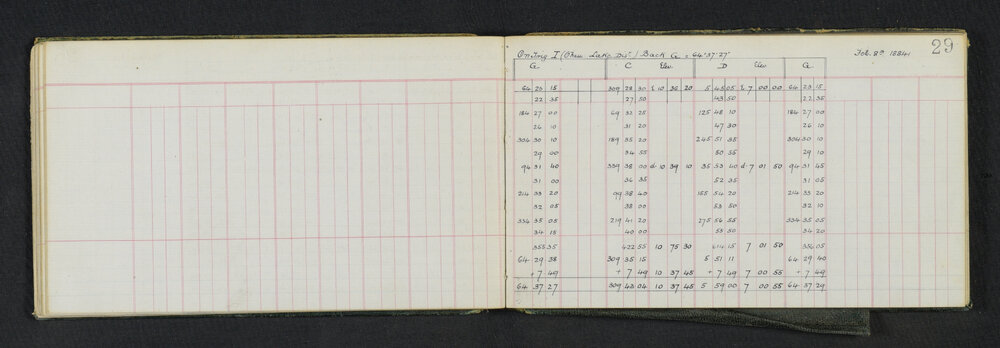 29
On Trig I (Chau Lake Dist) Back G = 64°37'27" Feb. 8th 1884
G C Elev. D Elev G
64 23 15 309 28 30 l 10 36 20 5 45 05 l 7 00 00 64 23 15
22 35 27 50 43 50 22 35
184 27 00 69 32 25 125 48 10 184 27 00
26 10 31 20 47 30 26 10
304 30 10 189 35 20 245 51 35 304 30 10
29 00 34 55 50 55 29 10
94 31 40 339 38 00 d. 10 39 10 35 53 40 d. 7 01 50 94 31 45
31 00 36 35 52 35 31 05
214 33 20 99 38 40 155 54 20 214 33 20
32 05 38 00 53 50 32 10
334 35 05 219 41 20 275 56 55 334 35 05
34 15 40 00 55 50 34 20
355 35 422 55 10 75 30 614 15 7 01 50 356 05
64 29 38 309 35 15 5 51 11 64 29 40
+ 7 49 + 7 49 10 37 45 + 7 49 7 00 55 + 7 49
64 37 27 309 43 04 10 37 45 5 59 00 7 00 55 64 37 29